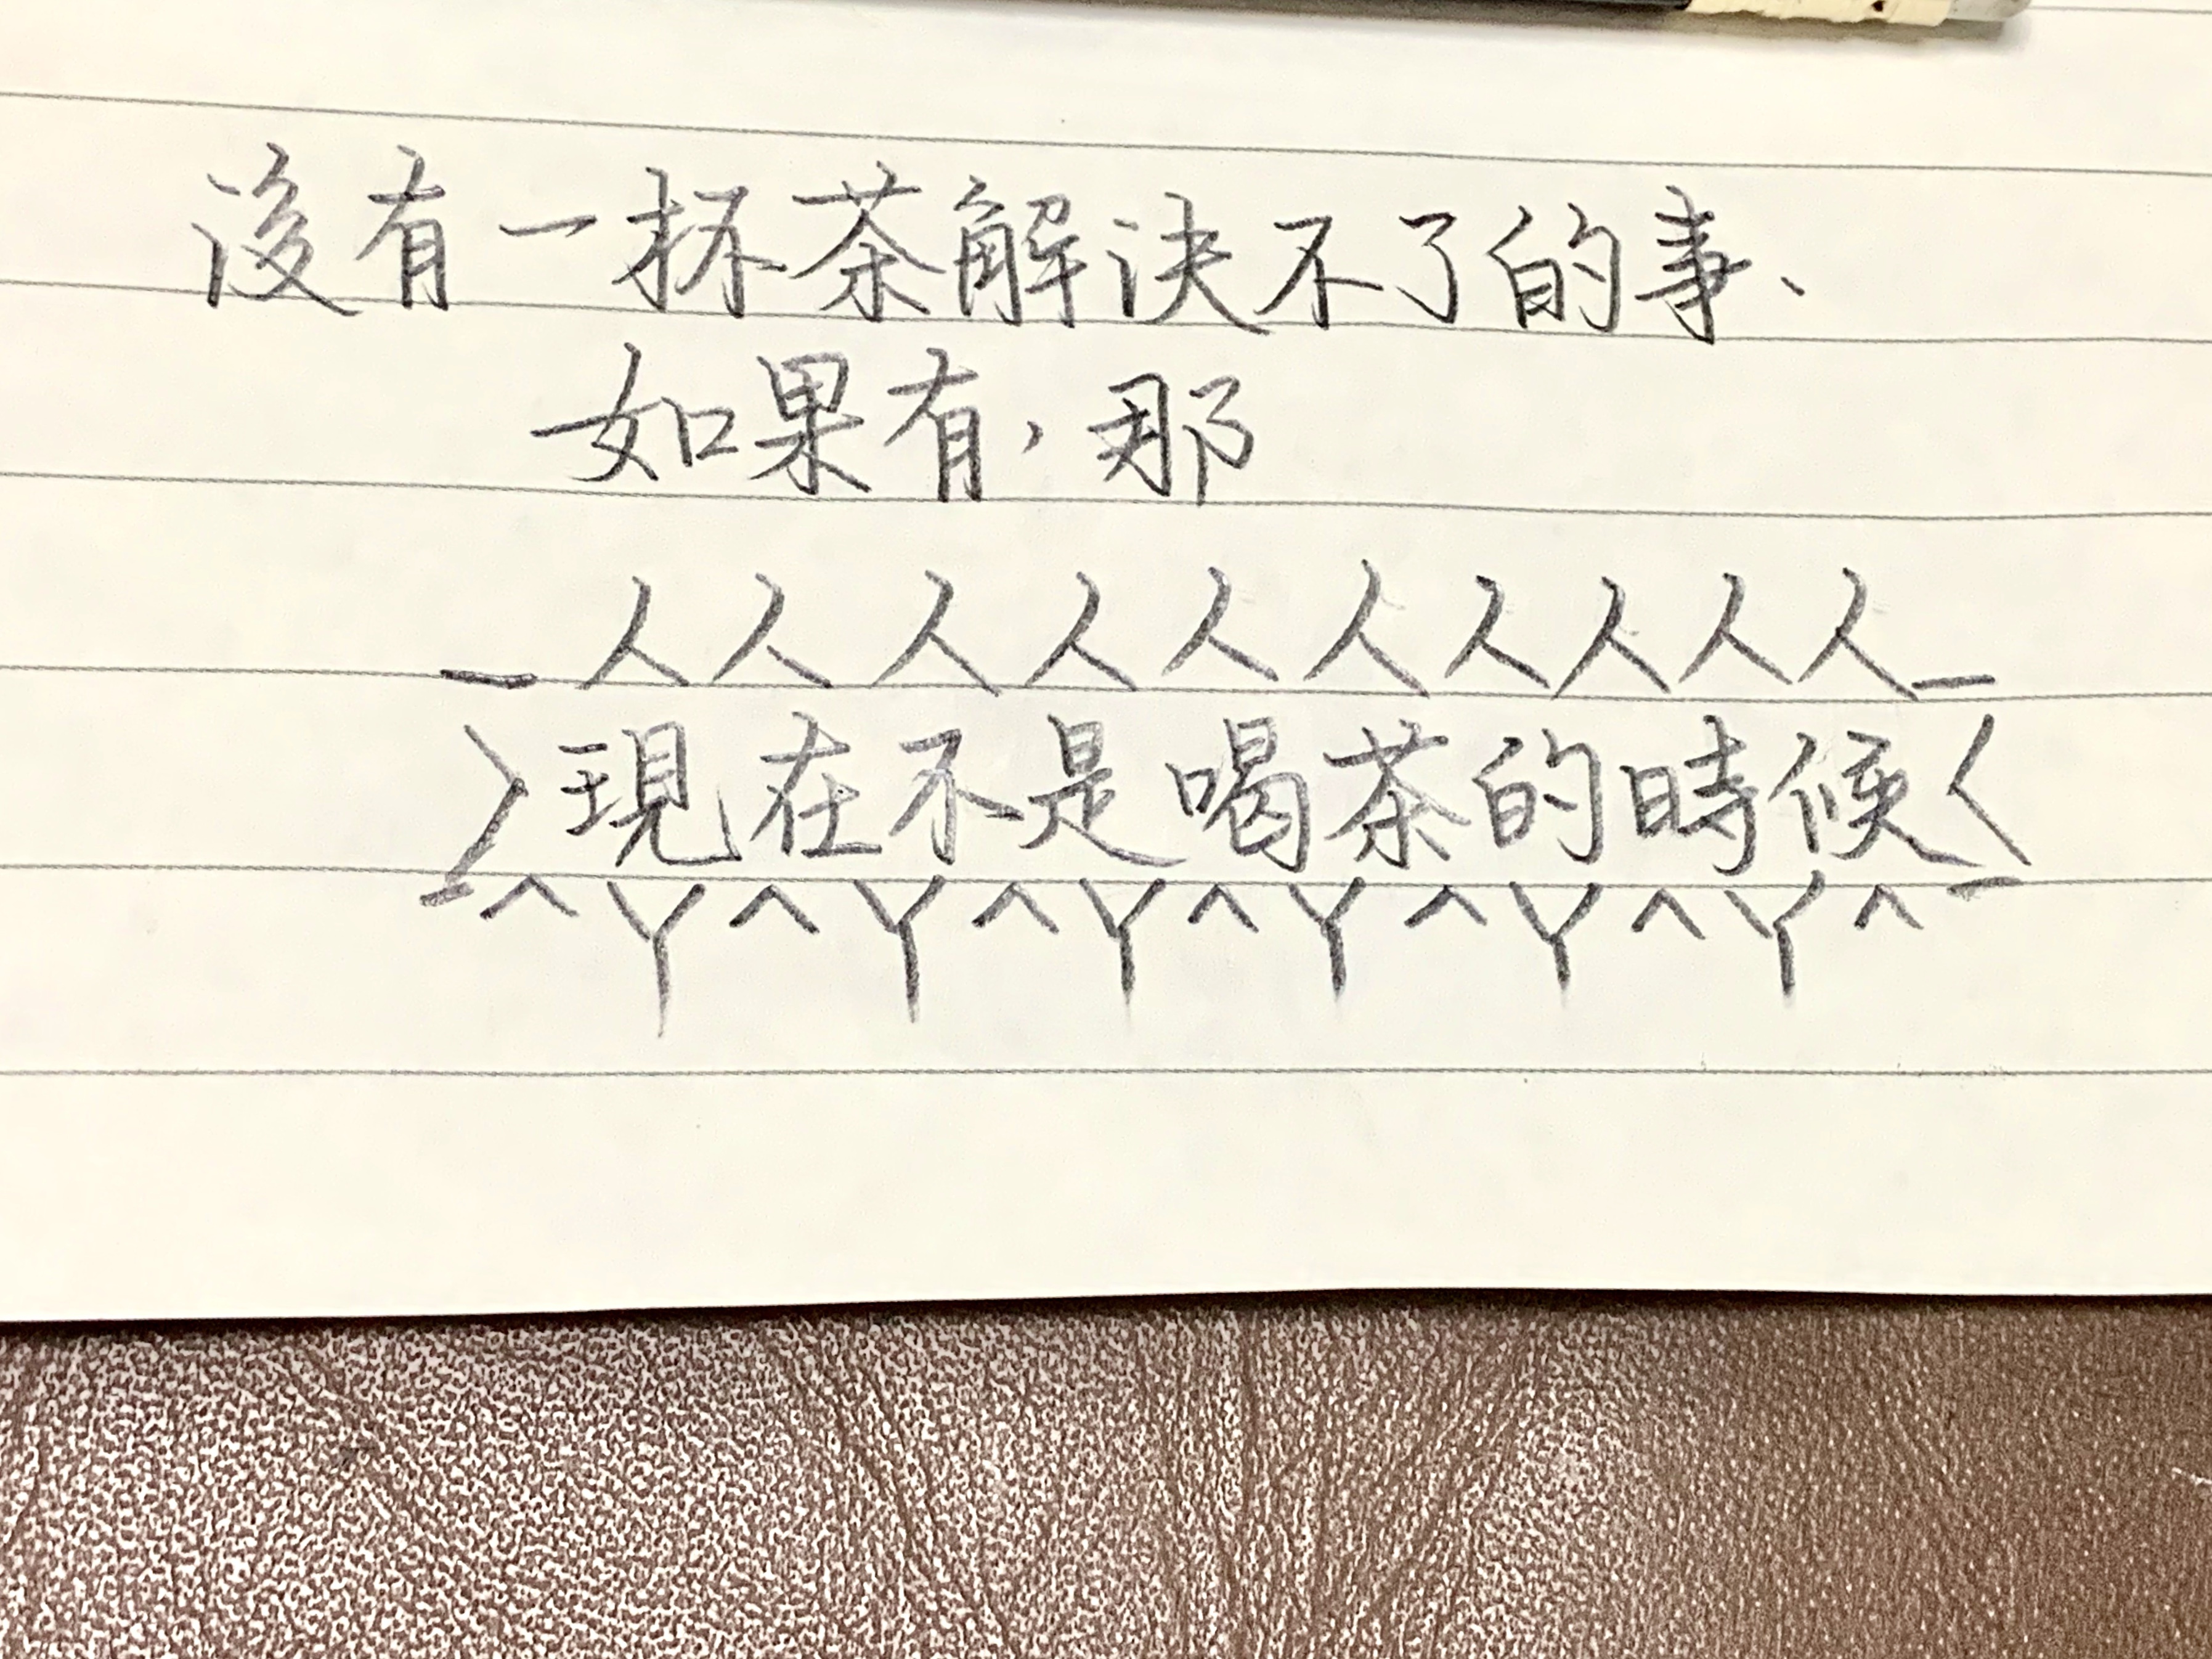 沒有一杯茶解决不了的事、
如果有，那
_人人人人人人人人人人_
＞現在不是喝茶的時候＜
￣^Y^Y^Y^Y^Y^Y^￣